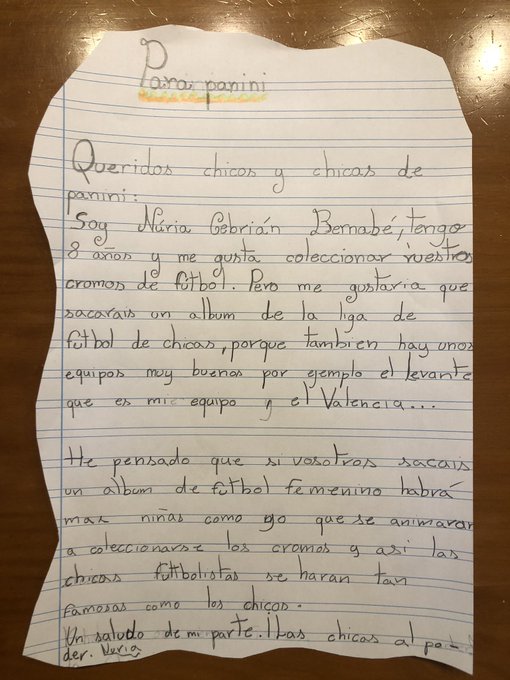 Para panini
Queridos chicos y chicas de
panini:
Soy Núria Cebrián Bernabé, tengo
8 años y me gusta coleccionar vuestros
cromos de fútbol. Pero me gustaria que
sacarais un album de la liga de
futbol de chicas, porque tambien hay unos
equipos muy buenos por ejemplo el levante
que es mi equipo y el Valencia...
He pensado que si vosotros sacais
un álbum de futbol femenino habrá
mas niñas como yo que se animaran
a coleccionarse los cromos y asi las
chicas futbolistas se haran tan
famosas como los chicos.
Un saludo de mi parte. ¡Las chicas al po-
der. Nuria